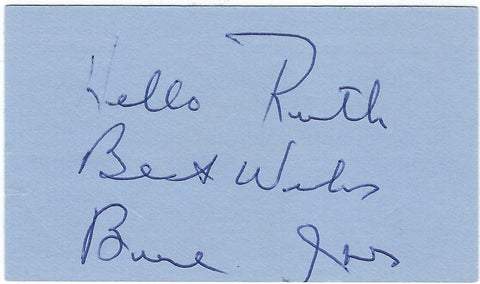 Hello Ruth
Best Wishes
Burl Ives